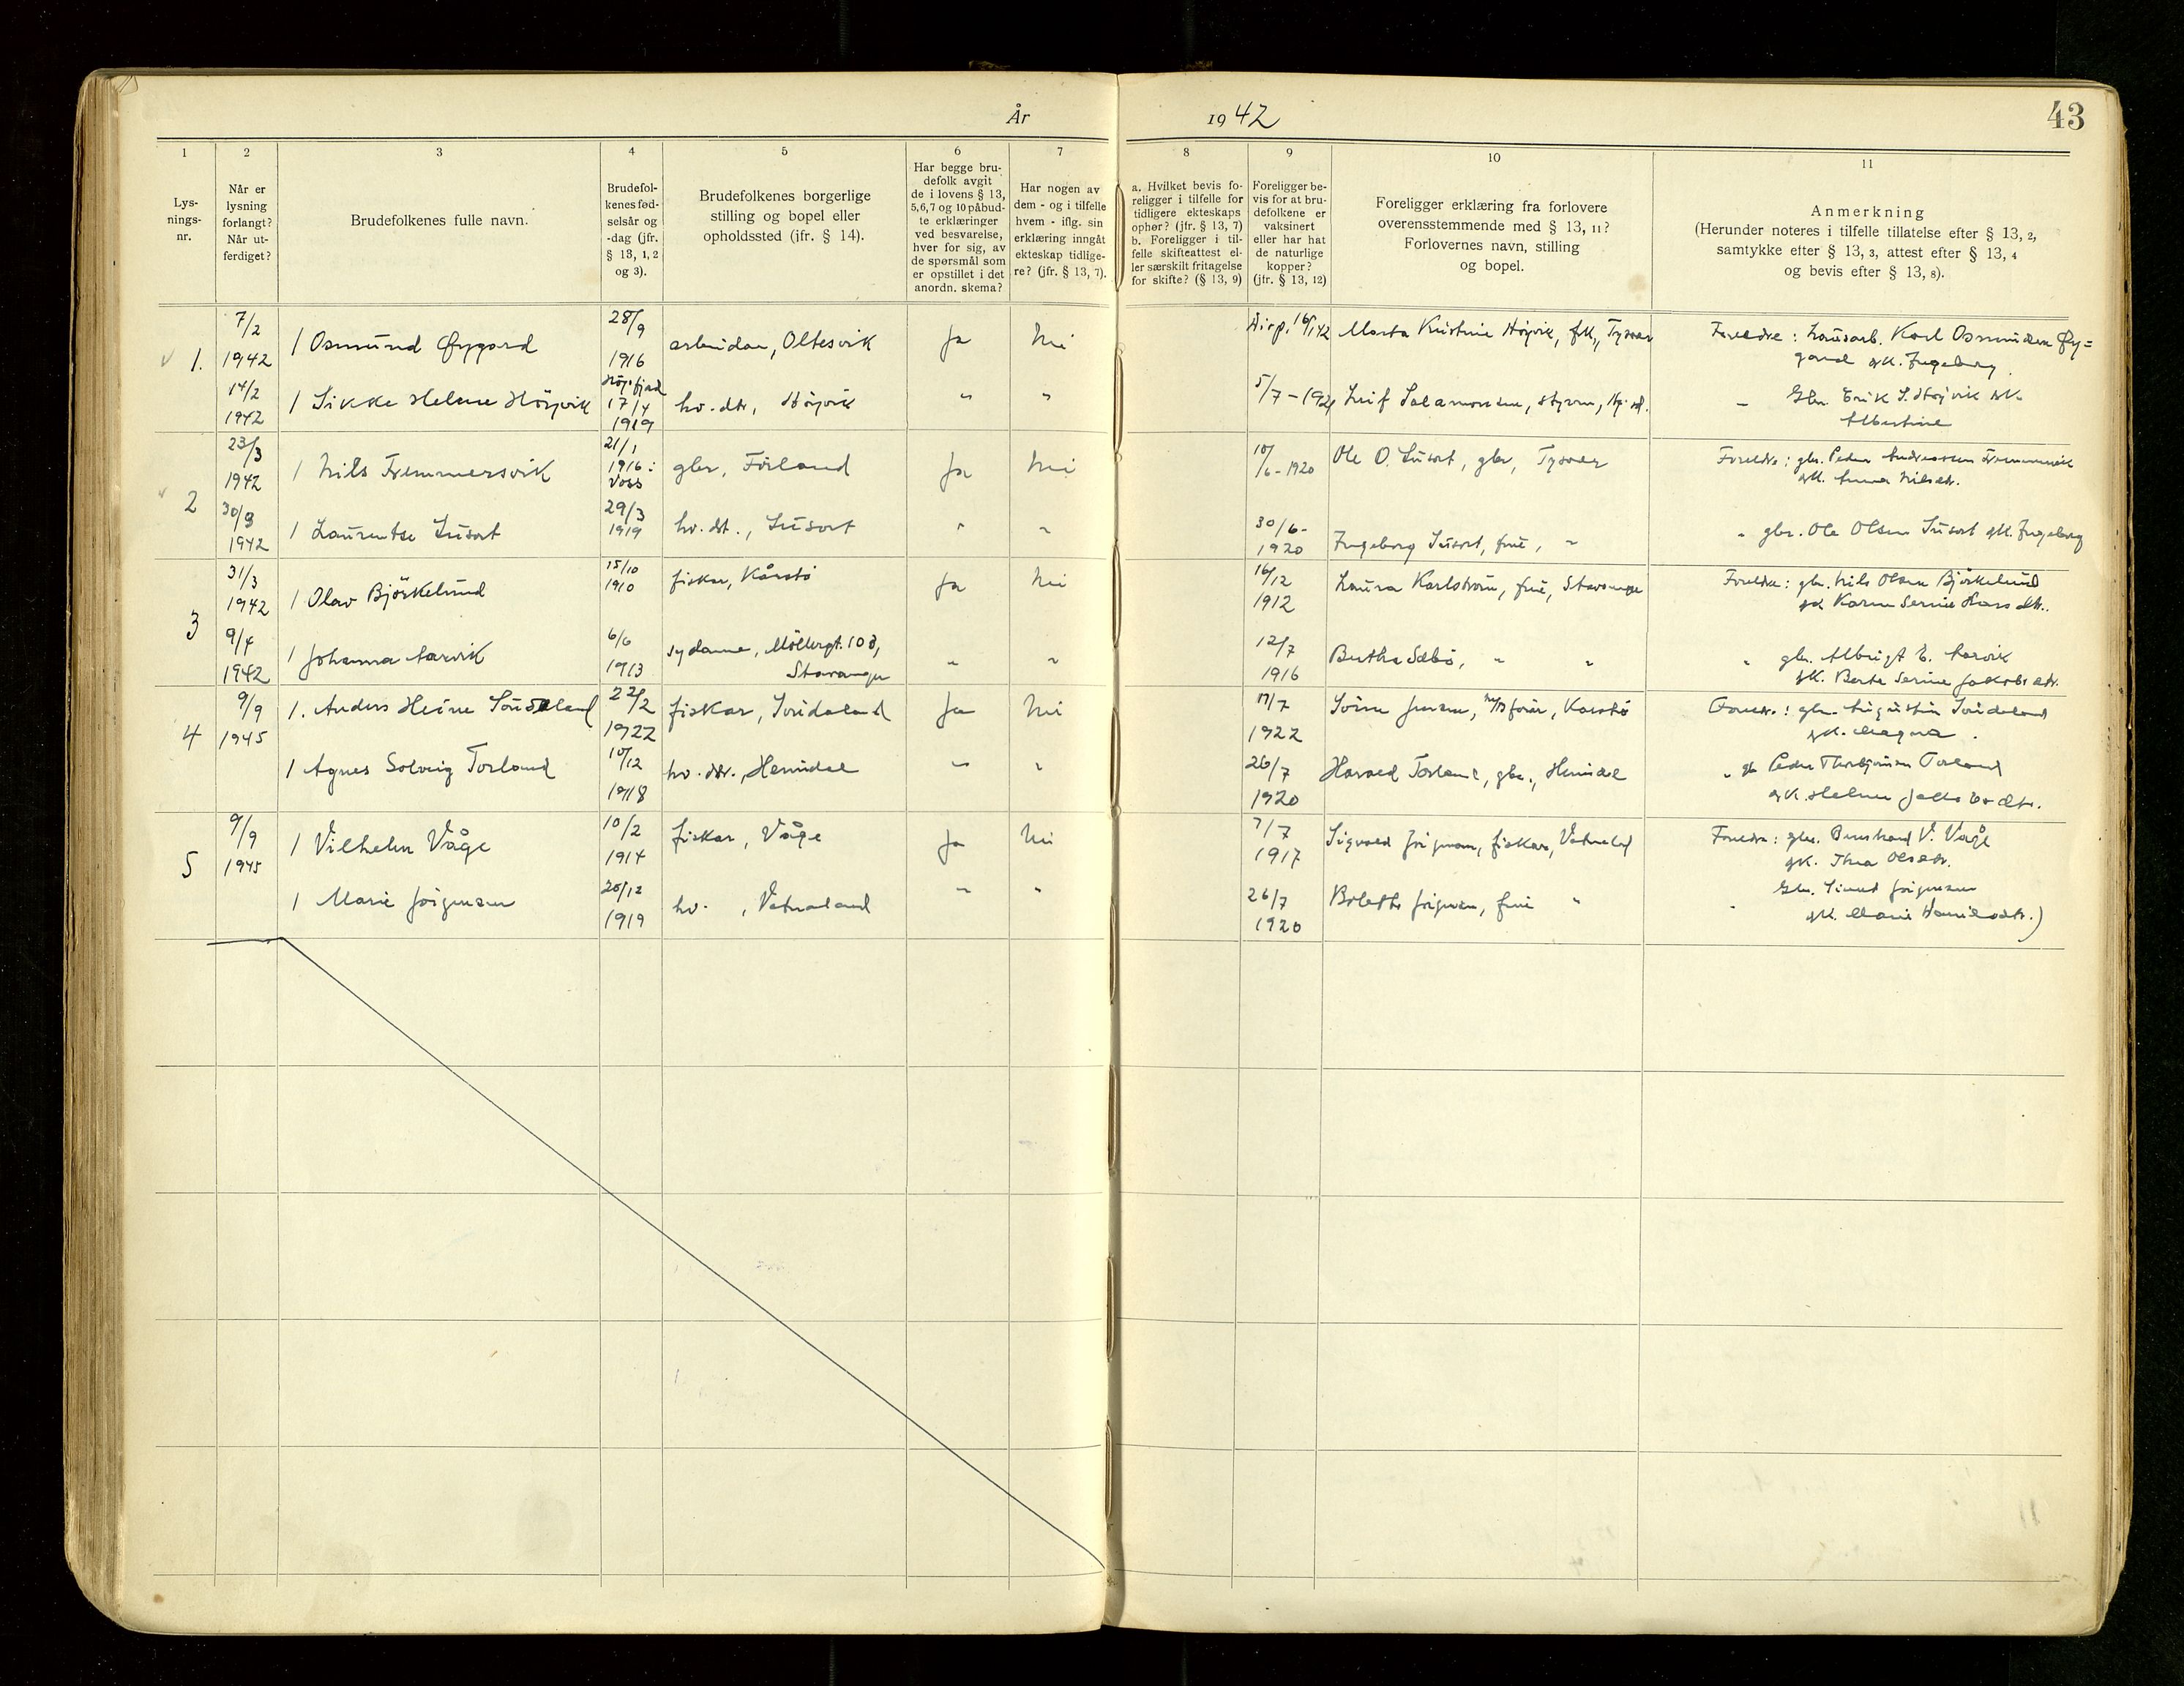 År 1942
43
1 2 3 4 5 6 7 8 9 10 11
Lys-
nings-
nr.
Når er
lysning
forlangt?
Når ut-
ferdiget?
Brudefolkenes fulle navn.
Brudefol-
kenes fød-
selsår og
-dag (jfr.
§ 13, 1, 2
og 3).
Brudefolkenes borgerlige
stilling og bopel eller
opholdssted (jfr. § 14).
Har begge bru-
defolk avgit
de i lovens § 13,
5,6,7 og 10 påbud-
te erklæringer
ved besvarelse,
hver for sig, av
de spørsmål som
er opstillet i det
anordn. skema?
Har nogen av
dem - og i tilfelle
hvem - iflg. sin
erklæring inngåt
ekteskap tidlige-
re? (jfr. § 13, 7).
a. Hvilket bevis fo-
religger i tilfelle for
tidligere ekteskaps
ophør? (jfr. § 13, 7)
b. Foreligger i til-
felle skifteattest el-
ler særskilt fritagelse
for skifte? (§ 13, 9)
Foreligger be-
vis for at bru-
defolkene er
vaksinert
eller har hat
de naturlige
kopper?
(jfr. § 13, 12)
Foreligger erklæring fra forlovere
overensstemmende med § 13, 11?
Forlovernes navn, stilling
og bopel.
Anmerkning
(Herunder noteres i tilfelle tillatelse efter § 13, 2,
samtykke efter § 13, 3, attest efter § 13, 4
og bevis efter § 13, 8).
1.
7/2
1942
1 Osmund Øygard
28/9
1916
arbeidar, Oltesvik
Ja
Nei
16/1 42
Marta Kristine Høyvik, frk., Tysvær
Foreldre: Lausarb. Karl Osmundsen Øy=
gard gk. Ingeborg.
14/2
1942
1 Sikke Helene Höyvik
17/4
1919
hv. dtr., Höyvik
"
"
5/7 - 192
Leif Salamonsen, styrm.,
" Gbr. Erik S. Høyvik gk.
Albertine
2
23/3
1942
1 Nils Fremmersvik
21/1
1916 i
Voss
gbr, Förland
Ja
Nei
10/6 - 1920
Ole O. Susort, gbr, Tysvær
Foreldre: gbr. Peder Andreassen Fremmersvik
gk. Anna Nilsdtr.
30/3
1942
1 Laurentse Susort
29/3
1919
hv. dt., Susort
"
"
30/6 -
1920
Ingeborg Susort, frue, "
" gbr. Ole Olsen Susort gk. Ingeborg
3
31/3
1942
1 Olav Björkelund
15/10
1910
fiskar, Kårstö
Ja
Nei
16/12
1912
Laura Karlström, frue, Stavanger
Foreldre: gbr. Nils Olsen Björkelund
gk Karen Serine Larsdtr.
9/4
1942
1 Johanna Aarvik
6/6
1913
sydame, Möllergt. 103,
Stavanger
"
"
12/7
1916
Bertha Sæbö, " "
" gbr. Albrigt E. Aarvik
gk. Berte Serine Jakobsdtr.
4
9/9
1945
1. Anders Heine Soridaland
22/2
1922
fiskar, Soridaland
Ja
Nei
17/7
1922
Sören Jensen, Karstö
Foreldr.: gbr. Augustin Soridaland
gk. Magna.
1 Agnes Solveig Torland
10/12
1918
hv. dtr., Hervidal
"
"
26/7
1920
Harald Torland, gbr., Hervidal
" gb Peder Thorbjörnsen Torland
gk. Helene
5
9/9
1945
1 Vilhelm Våge
10/2
1914
fiskar, Våge
Ja
Nei
7/7
1917
Sigvald Jörgensen, fiskar, Vatnaland
Foreldre: gbr. Bernhard V. Våge
gk. Thea Olsdtr.
1 Marie Jörgensen
20/12
1919
hv. , Vatnaland
"
"
26/7
1920
Bolette Jörgensen, frue "
" Gbr. Simot Jörgensen
gk. Marie Danielsdtr.)